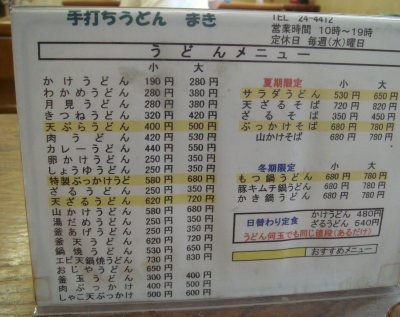 手打ちうどん まき
TEL 24-4412
営業時間 10時～19時
定休日 毎週(水)曜日
うどんメニュー
小 大
かけうどん 190円 280円
わかめうどん 280円 380円
月見うどん 280円 380円
きつねうどん 320円 420円
天ぷらうどん 400円 500円
肉うどん 420円 530円
カレーうどん 440円 550円
卵かけうどん 250円 350円
しょうゆうどん 250円 350円
特製ぶっかけうどん 580円 680円
ざるうどん 250円 350円
天ざるうどん 620円 720円
山かけうどん 480円 580円
湯だめうどん 250円 350円
釜あげうどん 250円 350円
釜天うどん 620円 720円
鍋焼うどん 530円 650円
エビ天鍋焼うどん 730円 830円
おじやうどん 650円
釜玉うどん 300円 400円
肉ぶっかけ 400円 500円
しゃこ天ぶっかけ 500円 600円
夏期限定 小 大
サラダうどん 530円 650円
天ざるそば 720円 820円
ざるそば 350円 450円
ぶっかけそば 680円 780円
山かけそば 680円 780円
冬期限定 小 大
もつ鍋うどん 680円 780円
豚キムチ鍋うどん 680円 780円
かき鍋うどん 680円 780円
日替わり定食 かけうどん 480円
ざるうどん 640円
うどん何玉でも同じ値段(あるだけ)
おすすめメニュー